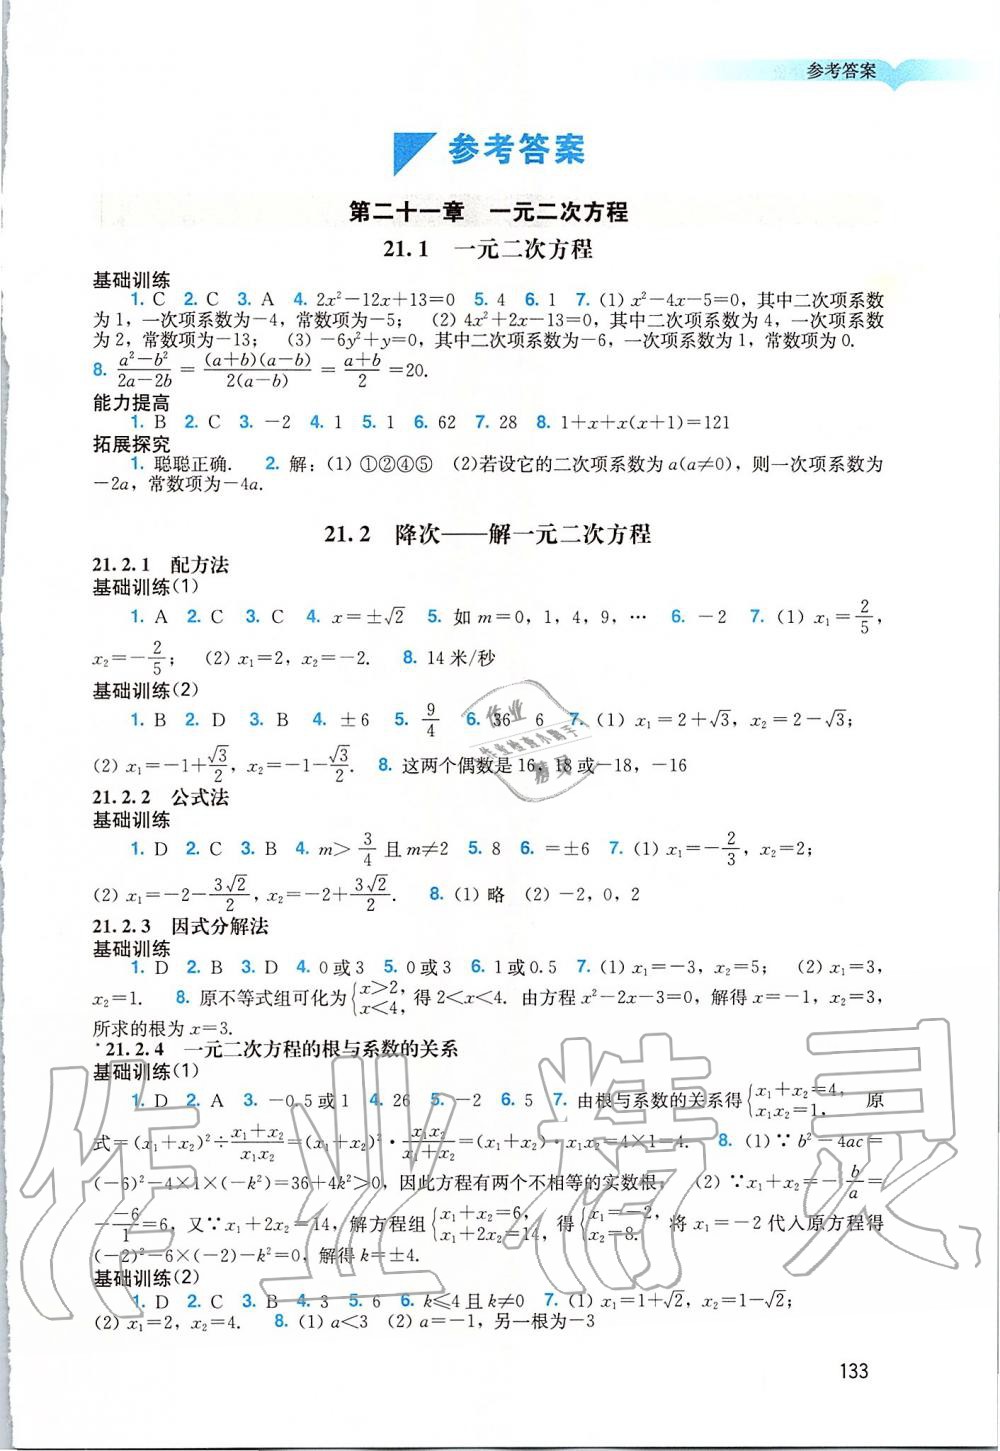 参考答案
参考答案
第二十一章　一元二次方程
21.1　一元二次方程
基础训练
1. C　2. C　3. A　4. 2x²－12x＋13＝0　5. 4　6. 1　7. (1) x²－4x－5＝0，其中二次项系数
为1，一次项系数为－4，常数项为－5；　(2) 4x²＋2x－13＝0，其中二次项系数为4，一次项系数
为2，常数项为－13；　(3) －6y²＋y＝0，其中二次项系数为－6，一次项系数为1，常数项为0.
8. (a²－b²)/(2a－2b)＝(a＋b)(a－b)/2(a－b)＝(a＋b)/2＝20.
能力提高
1. B　2. C　3. －2　4. 1　5. 1　6. 62　7. 28　8. 1＋x＋x(x＋1)＝121
拓展探究
1. 聪聪正确.　2. 解：(1) ①②④⑤　(2)若设它的二次项系数为a(a≠0)，则一次项系数为
－2a，常数项为－4a.
21.2　降次——解一元二次方程
21.2.1　配方法
基础训练(1)
1. A　2. C　3. C　4. x＝±√2　5. 如m＝0，1，4，9，…　6. －2　7. (1) x₁＝2/5，
x₂＝－2/5；　(2) x₁＝2，x₂＝－2.　8. 14米/秒
基础训练(2)
1. B　2. D　3. B　4. ±6　5. 9/4　6. 36　6　7. (1) x₁＝2＋√3，x₂＝2－√3；
(2) x₁＝－1＋√3/2，x₂＝－1－√3/2.　8. 这两个偶数是16，18或－18，－16
21.2.2　公式法
基础训练
1. D　2. C　3. B　4. m＞3/4且m≠2　5. 8　6. ＝±6　7. (1) x₁＝－2/3，x₂＝2；
(2) x₁＝－2－3√2/2，x₂＝－2＋3√2/2.　8. (1) 略　(2) －2，0，2
21.2.3　因式分解法
基础训练
1. D　2. B　3. D　4. 0或3　5. 0或3　6. 1或0.5　7. (1) x₁＝－3，x₂＝5；　(2) x₁＝3，
x₂＝1.　8. 原不等式组可化为{x＞2，x＜4，得2＜x＜4. 由方程x²－2x－3＝0，解得x＝－1，x₂＝3，
所求的根为x＝3.
*21.2.4　一元二次方程的根与系数的关系
基础训练(1)
1. D　2. A　3. －0.5或1　4. 26　5. －2　6. 5　7. 由根与系数的关系得{x₁＋x₂＝4，x₁x₂＝1. 原
式＝(x₁＋x₂)²÷(x₁＋x₂)/(x₁x₂)＝(x₁＋x₂)²·x₁x₂/(x₁＋x₂)＝(x₁＋x₂)·x₁x₂＝4×1＝4.　8. (1)∵b²－4ac＝
(－6)²－4×1×(－k²)＝36＋4k²＞0，因此方程有两个不相等的实数根；　(2)∵x₁＋x₂＝－b/a＝
－(－6)/1＝6，又∵x₁＋2x₂＝14，解方程组{x₁＋x₂＝6，x₁＋2x₂＝14，得{x₁＝－2，x₂＝8. 将x₁＝－2代入原方程得
(－2)²－6×(－2)－k²＝0，解得k＝±4.
基础训练(2)
1. D　2. C　3. B　4. 3　5. 6　6. k≤4且k≠0　7. (1) x₁＝1＋√2，x₂＝1－√2；
(2) x₁＝2，x₂＝4.　8. (1) a＜3　(2) a＝－1，另一根为－3
133
作业精灵